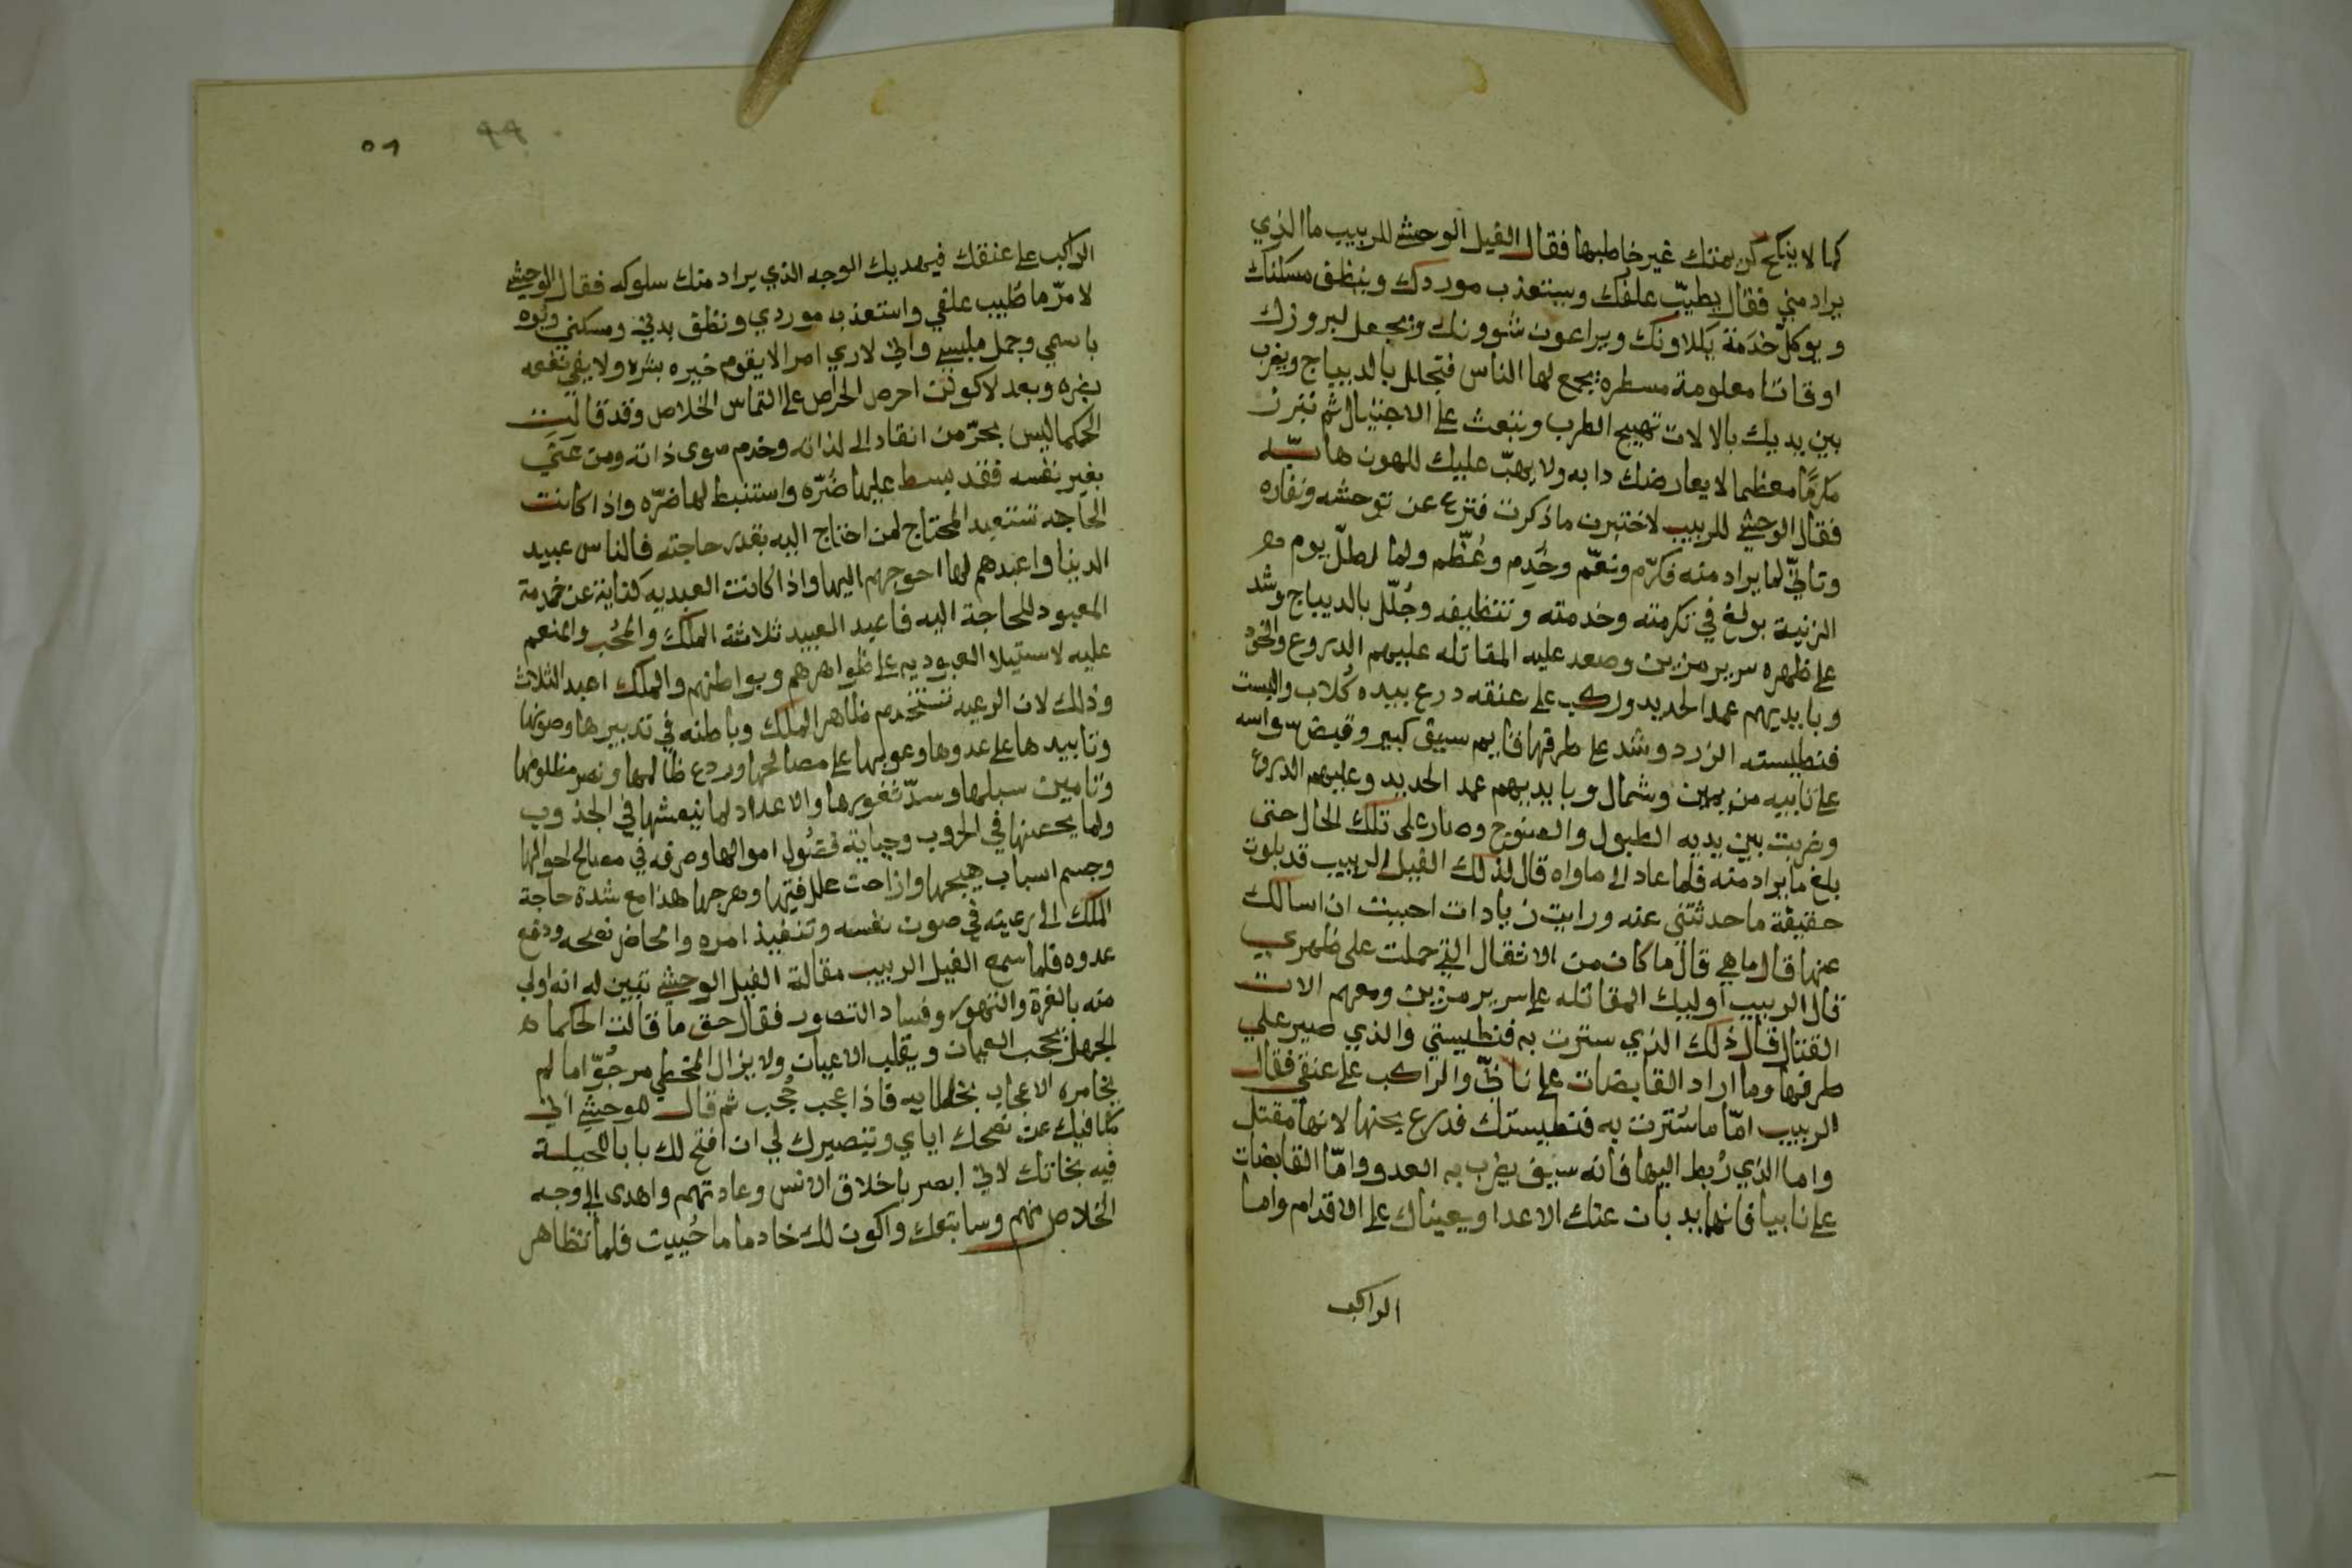 كما لا ينكح كريمتك غير خاطبها فقال الفيل الوحشي للربيب ما الذي
يراد مني فقال يطيّب علفك ويستعذب موردك وينظف مسكنك
ويوكل خدمة يكلاونك ويراعون شوونك ويجعل لبروزك
اوقاتا معلومة مسطره يجمع لها الناس فتجلل بالديباج ويضرب
بين يديك بالالات تهييج الطرب وتبعث على الاختيال ثم تبرز
مكرمًا معظما لا يعارضك دابه ولا يهبّ عليك للهون هابّه
فقال الوحشي للربيب لاختبرن ما ذكرت فنزع عن توحشه ونفاره
وتاتّى لما يراد منه فكرّم ونعّم وخُدِم وعُظّم ولما اطلّ يوم
الزنية بولغ في تكرمته وخدمته وتنظيفه وجُلّل بالديباج وشد
على ظهره سرير مزين وصعد عليه المقاتله عليهم الدروع والخوذ
وبايديهم عمد الحديد وركب على عنقه درع بيده كُلاب والبست
فنطيسته الزرد وشد على طرفها قايم سيف كبير وقبض سواسه
على نابيه من يمين وشمال وبايديهم عمد الحديد وعليهم الدروع
وضربت بين يديه الطبول والصنوج وصار على تلك الحال حتى
بلغ ما يراد منه فلما عاد الى ماواه قال لذلك الفيل الربيب قد بلوت
حقيقة ما حدثتني عنه ورايت زيادات احببت ان اسالك
عنها قال ما هي قال ما كان من الاثقال التي حملت على ظهري
قال الربيب اوليك المقاتله على سرير مزين ومعهم الات
القتال قال ذلك الذي سترت به فنطيستي والذي صير على
طرفها وما اراد القابضان على نابيّ والراكب على عنقي فقال
الربيب امّا ما سُترت به فنطيستك فدرع يجنها لانها مقتل
واما الذي رُبط اليها فانه سيف يضرب به العدو وامّا القابضان
على نابيا فانهما يدبان عنك الاعدا ويعيناك على الاقدام واما
الراكب
٥١
٩٩
الراكب على عنقك فيهديك الوجه الذي يراد منك سلوكه فقال الوحشي
لامرّ ما طُيب علفي واستعذب موردي ونظف بدني ومسكني ونُوه
باسمي وجمل ملبسي واني لاري امرا لا يقوم خيره بشره ولا يفي نفعه
بضره وبعد لاكونن احرص الحراص على التماس الخلاص وقد قالت
الحكما ليس بحرّ من انقاد الى لذاته وخدم سوى ذاته ومن عني
بغير نفسه فقد بسط عليها ضُرّه واستنبط لها ضرّه واذا كانت
الحاجه تستعبد المحتاج لمن احتاج اليه بقدر حاجته فالناس عبيد
الدينا واعبدهم لها احوجهم اليها واذا كانت العبديه كناية عن خدمة
المعبود للحاجة اليه فاعبد العبيد ثلاثة الملك والمحُب والمنعم
عليه لاستيلا العبوديه على ظواهرهم وبواطنهم والملك اعبد الثلاث
وذلك لان الرعيه تستخدم ظاهر الملك وباطنه في تدبيرها وصونها
وتاييدها على عدوها وعونها على مصالحها وردع ظالمها ونصر مظلومها
وتامين سبلها وسدّ ثغورها والاعداد لما ينعشها في الجدوب
ولما يحصنها في الحروب وجباية فضُول اموالها وصرفه في مصالح احوالها
وجسم اسباب هيجها وازاحت علل فيتها وهرجها هذا مع شدة حاجة
الملك الى رعيته في صون نفسه وتنفيذ امره وامحاض نصحه ودفع
عدوه فلما سمع الفيل الربيب مقالة الفيل الوحشي تبين له انه اولى
منه بالغرة والتهور وفساد التصور فقال حق ما قالت الحكماه
الجهل يحجب العيان ويقلب الاعيان ولا يزال المخطي مرجُوّا ما لم
يخامره الاعجاب بخطايه فاذا عجب حُجب ثم قال للوحشي اني
مكافيك عن نصحك اياي وتبصيرك لي ان افتح لك بابا للحيلة
فيه نجاتك لاني ابصر باخلاق الانس وعادتهم واهدى الى وجه
الخلاص منهم وسابتعك واكون لك خادما ما حُييت فلما تظاهر